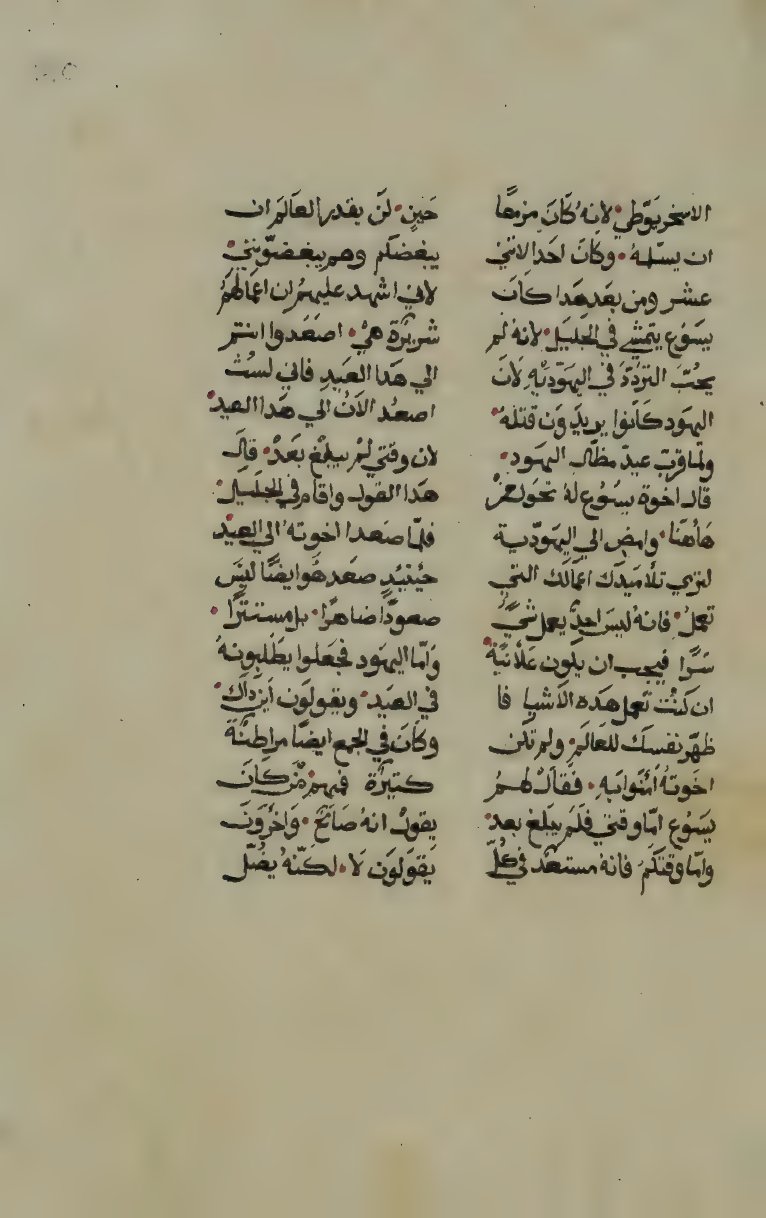 الاسخريوطي لانه كان مزمعا
ان يسلمه وكان احد الاثني
عشر ومن بعد هدا كان
يسوع يتمشى في الجليل لانه لم
يحب التردد في اليهوديه لان
اليهود كانوا يريدون قتله
ولما قرب عيد مظال اليهود
قال اخوة يسوع له تحول من
هاهنا وامض الي اليهودية
لتري تلاميدك اعمالك التي
تعمل فانه ليس احد يعمل شي
سرا فيجب ان يكون علانية
ان كنت تعمل هده الاشيا فا
ظهر نفسك للعالم ولم تكن
اخوته امنوا به فقال لهم
يسوع اما وقتي فلم يبلغ بعد
واما وقتكم فانه مستعد في كل
حين لن يقدر العالم ان
يبغضكم وهم يبغضوني
لاني اشهد عليهم ان اعمالهم
شريرة هي اصعدوا انتم
الي هدا العيد فاني لست
اصعد الان الي هدا العيد
لان وقتي لم يبلغ بعد قال
هدا القول واقام في الجليل
فلما صعدا اخوته الي العيد
حينيد صعد هوا ايضا ليس
صعودا ضاهرا بل مستترا
واما اليهود فجعلوا يطلبونه
في العيد ويقولون اين داك
وكان في الجمع ايضا مراطنة
كتيرة فمنهم من كان
يقول انه صالح واخرون
يقولون لا لكنه يضل